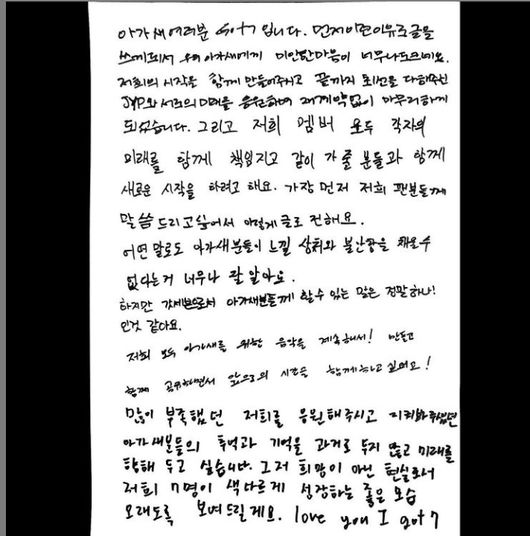 아가새여러분 GOT7 입니다. 먼저이런이유로글을
쓰게되어서 우리 아가새에게 미안한마음이 너무나도크네요.
저희의 시작을 함께 만들어주시고 끝까지 최선을 다해주신
JYP와 서로의 미래를 응원하며 재계약없이 마무리하게
되었습니다. 그리고 저희 멤버 모두 각자의
미래를 함께 책임지고 같이 가 줄 분들과 함께
새로운 시작을 하려고 해요. 가장 먼저 저희 팬분들께
말씀 드리고싶어서 이렇게 글로 전해요.
어떤 말로도 아가새분들이 느낄 상처와 불안감을 채울수
없다는거 너무나 잘 알아요.
하지만 갓세븐으로서 아가새분들께 할수 있는 말은 정말하나!
인것 같다요.
저희 모두 아가새를 위한 음악을 계속해서! 만들고
함께 공유하면서 앞으로의 시간들 함께하고 싶어요!
많이 부족했던 저희를 응원해주시고 지켜봐주셨던
아가새분들의 추억과 기억을 과거로 두지 않고 미래를
향해 두고 싶습니다. 그저 희망이 아닌 현실로서
저희 7명이 색다르게 성장하는 좋은 모습
오래도록 보여드릴게요. love you I got7